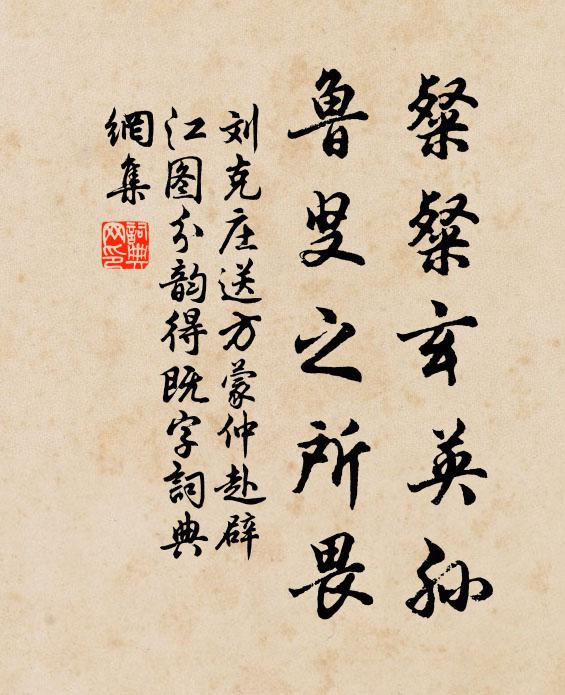 粲粲玄英孙
鲁叟之所畏
刘克庄送方蒙仲赴辟
江图分韵得既字词典
網集
詞典網印